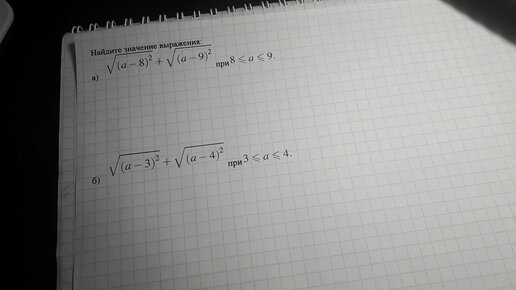 Найдите значение выражения:
а) √(a − 8)² + √(a − 9)² при 8 ⩽ a ⩽ 9.
б) √(a − 3)² + √(a − 4)² при 3 ⩽ a ⩽ 4.